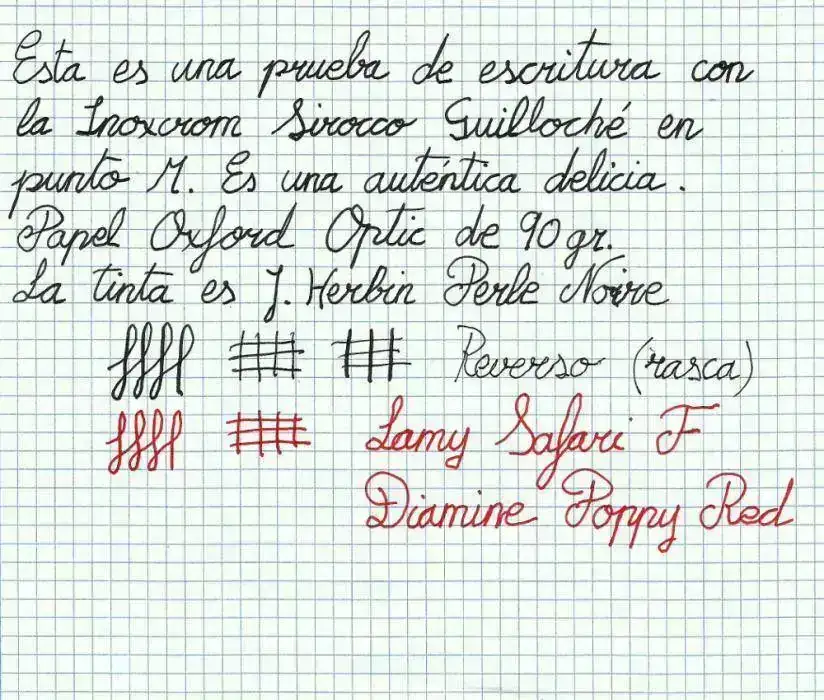 Esta es una prueba de escritura con
la Inoxcrom Sirocco Guilloché en
punto M. Es una auténtica delicia.
Papel Oxford Optic de 90 gr.
La tinta es J. Herbin Perle Noire
Reverso (rasca)
Lamy Safari F
Diamine Poppy Red